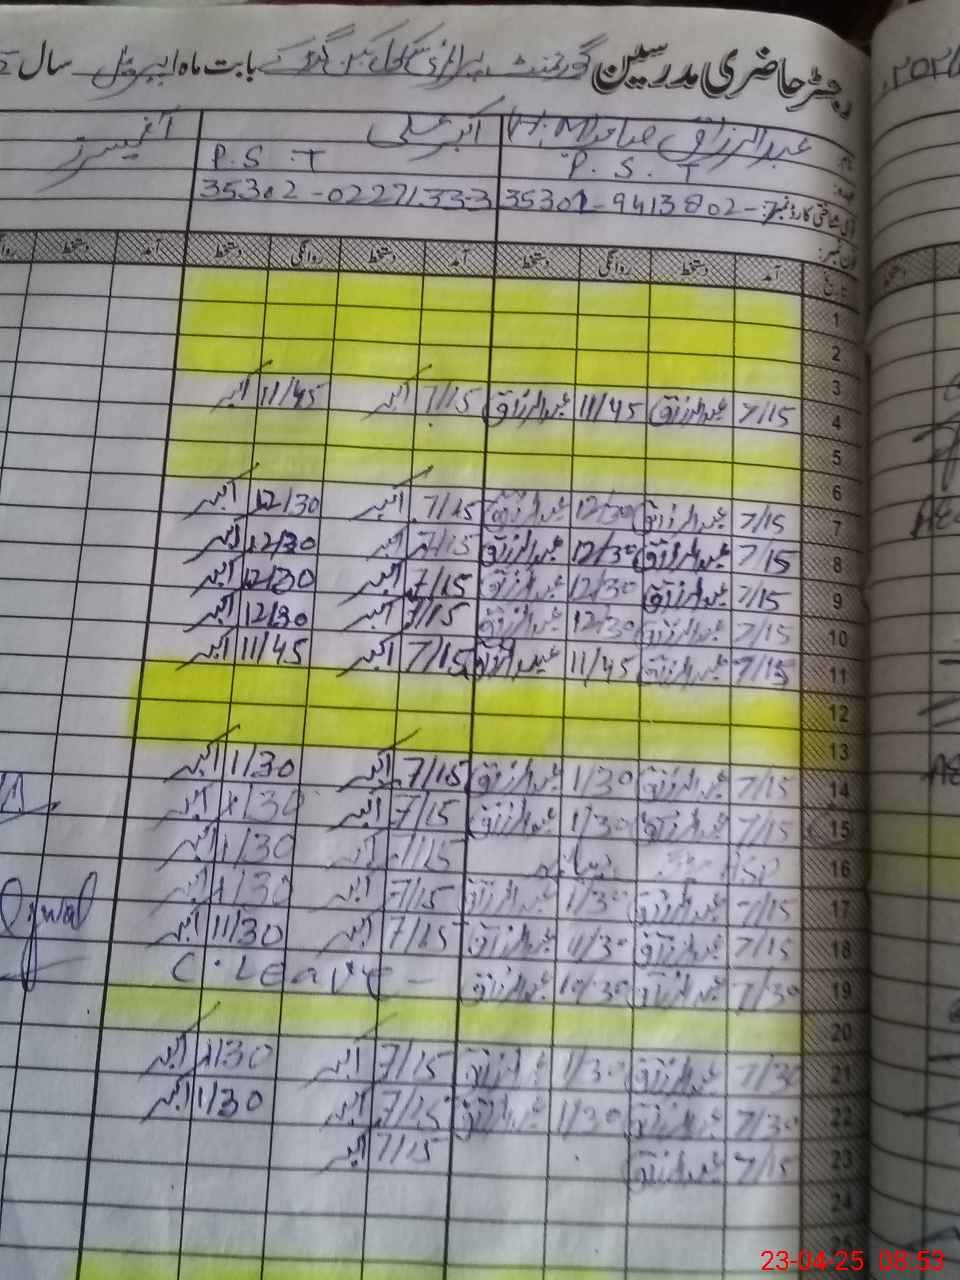 رجسٹر حاضری مدرسین گورنمنٹ پرائمری سکول بابت ماہ اپریل سال
عبدالرزاق صاحب (H.M) اکبر علی آفیسرز
P. S. T P. S. T
شناختی کارڈ نمبر 35301-9413802-7 35302-0227133-3
تاریخ آمد دستخط روانگی دستخط آمد دستخط روانگی دستخط آمد دستخط
1
2
3
4 7/15 عبدالرزاق 11/45 عبدالرزاق 7/15 اکبر 11/45 اکبر
5
6
7 7/15 عبدالرزاق 12/30 عبدالرزاق 7/15 اکبر 12/30 اکبر
8 7/15 عبدالرزاق 12/30 عبدالرزاق 7/15 اکبر 12/30 اکبر
9 7/15 عبدالرزاق 12/30 عبدالرزاق 7/15 اکبر 12/30 اکبر
10 7/15 عبدالرزاق 12/30 عبدالرزاق 7/15 اکبر 12/30 اکبر
11 7/15 عبدالرزاق 11/45 عبدالرزاق 7/15 اکبر 11/45 اکبر
12
13
14 7/15 عبدالرزاق 1/30 عبدالرزاق 7/15 اکبر 1/30 اکبر
15 7/15 عبدالرزاق 1/30 عبدالرزاق 7/15 اکبر 1/30 اکبر
16 7/15 اکبر 1/30 اکبر
17 7/15 عبدالرزاق 1/30 عبدالرزاق 7/15 اکبر 1/30 اکبر
18 7/15 عبدالرزاق 11/30 عبدالرزاق 7/15 اکبر 11/30 اکبر
19 7/30 عبدالرزاق 10/30 عبدالرزاق C. Leave -
20
21 7/30 عبدالرزاق 1/30 عبدالرزاق 7/15 اکبر 1/30 اکبر
22 7/30 عبدالرزاق 1/30 عبدالرزاق 7/15 اکبر 1/30 اکبر
23 7/15 عبدالرزاق 7/15 اکبر
24
25
23-04-25 08:53